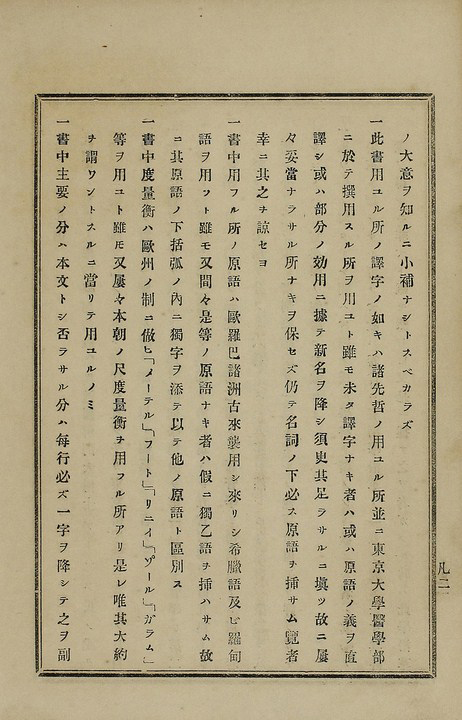 ノ大意ヲ知ルニ小補ナシトスベカラズ
一此書用ユル所ノ譯字ノ如キハ諸先哲ノ用ユル所並ニ東京大學醫學部
ニ於テ撰用スル所ヲ用ユト雖モ未タ譯字ナキ者ハ或ハ原語ノ義ヲ直
譯シ或ハ部分ノ効用ニ據テ新名ヲ降シ須臾其足ラサルニ塡ツ故ニ屢
々妥當ナラサル所ナキヲ保セズ仍テ名詞ノ下必ス原語ヲ挿サム覽者
幸ニ其之ヲ諒セヨ
一書中用フル所ノ原語ハ歐羅巴諸洲古來襲用シ來リシ希臘語及ビ羅甸
語ヲ用フト雖モ又間々是等ノ原語ナキ者ハ假ニ獨乙語ヲ挿ハサム故
ニ其原語ノ下括弧ノ內ニ獨字ヲ添テ以テ他ノ原語ト區別ス
一書中度量衡ハ歐州ノ制ニ倣ヒ「メーテル」「フート」「リニイ」「ゾール」「ガラム」
等ヲ用ユト雖モ又屢々本朝ノ尺度量衡ヲ用フル所アリ是レ唯其大約
ヲ謂ワントスルニ當リテ用ユルノミ
一書中主要ノ分ハ本文トシ否ラサル分ハ每行必ズ一字ヲ降シテ之ヲ副
凡二